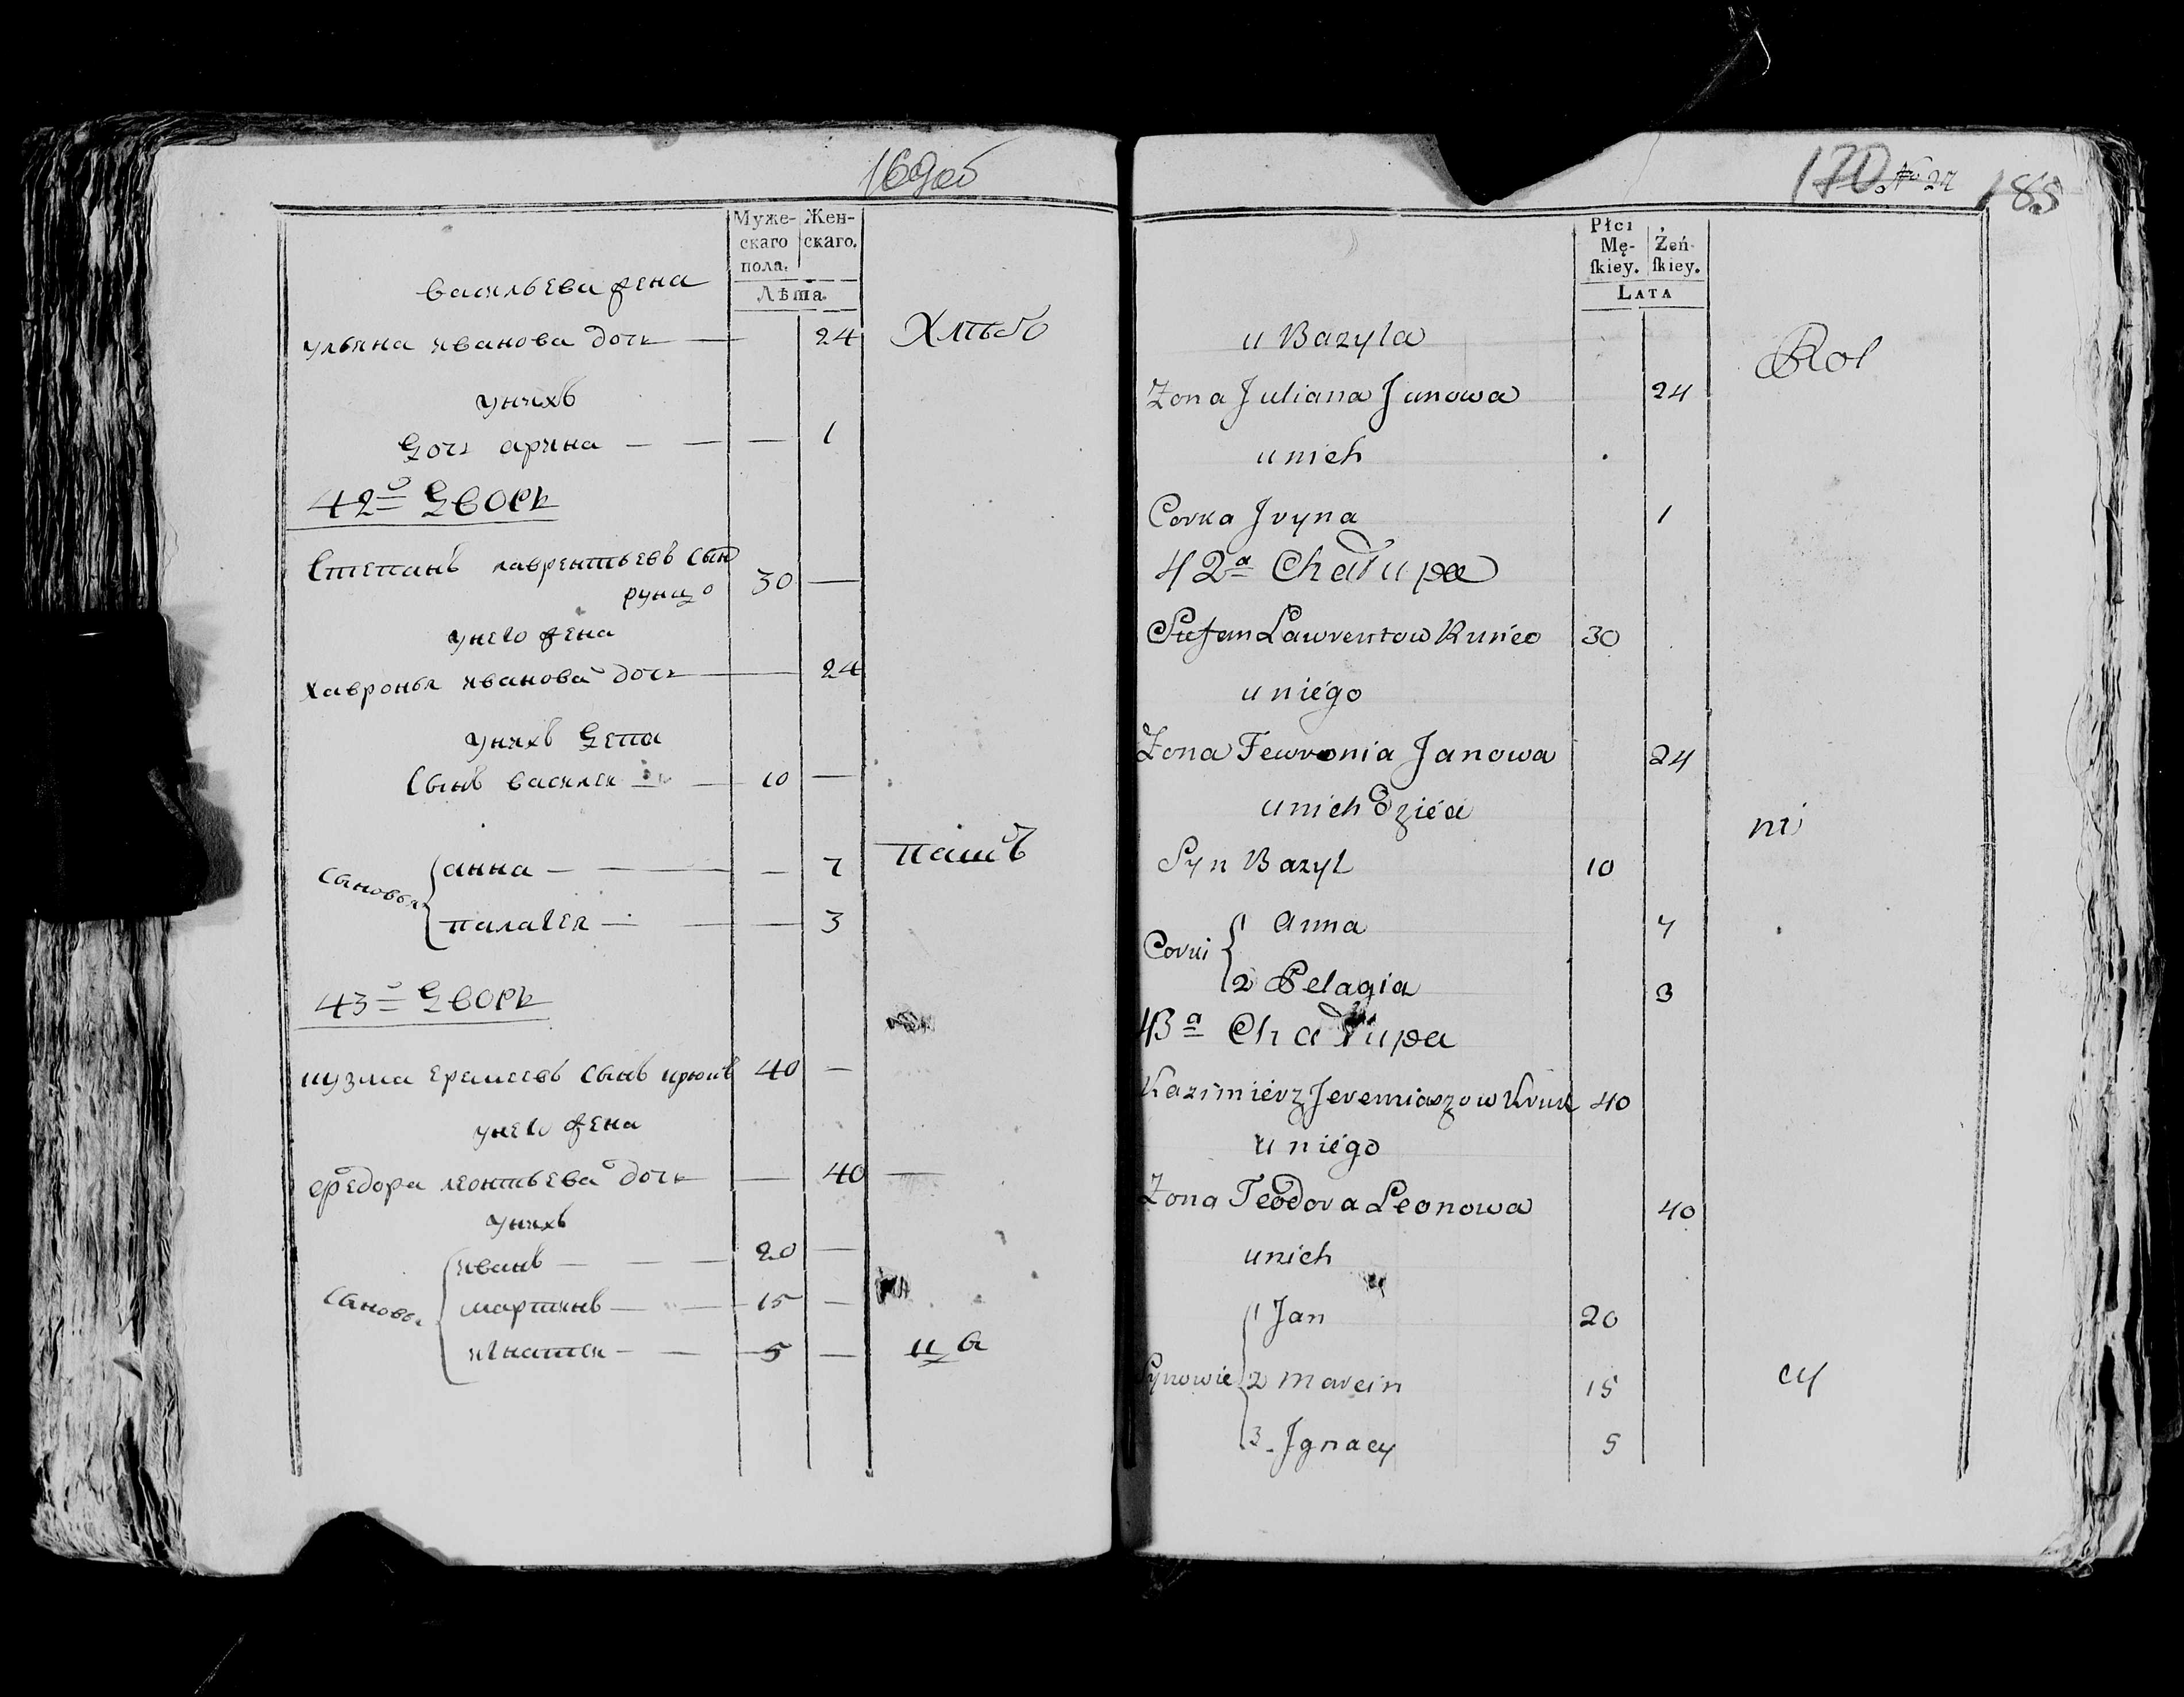 169об
Муже- Жен-
скаго скаго.
пола.
Лѣта.
васильева жена
ульяна иванова дочь — 24 Хлѣбо
унихъ
Дочь арина — — — 1
42й Дворъ
Степанъ лаврентьевъ сын
рунцо 30 —
унего жена
хавронья иванова дочь — 24
унихъ Дети
Сынъ василеи — 10 —
анна — — — 7 пашъ
Сановья
палагея — — — 3
43й Дворъ
кузма еремеевъ сынъ крюкъ 40 —
унего жена
федора леонтьева дочь — 40 —
унихъ
иванъ — — — 20 —
Сановья мартинъ — — 15 —
игнатеи — — 5 — ца
170 № 27 185
Płci
Mę- Żeń-
ſkiey. ſkiey.
LATA
u Bazyla
Żona Juliana Janowa 24 Rol
unich
Corka Jryna 1
42a Chałupa
Stefan Lawrentow Runéo 30
u niégo
Żona Fewronia Janowa 24
unich Dziéci
ni
Syn Bazyl 10
1 Anna 7
Corki
2 Pelagia 3
43a Chałupa
Kazimiérz Jeremiaszow Kruk 40
u niégo
Żona Teodora Leonowa 40
unich
1 Jan 20
Synowie 2 Marcin 15 cy
3. Jgnacy 5